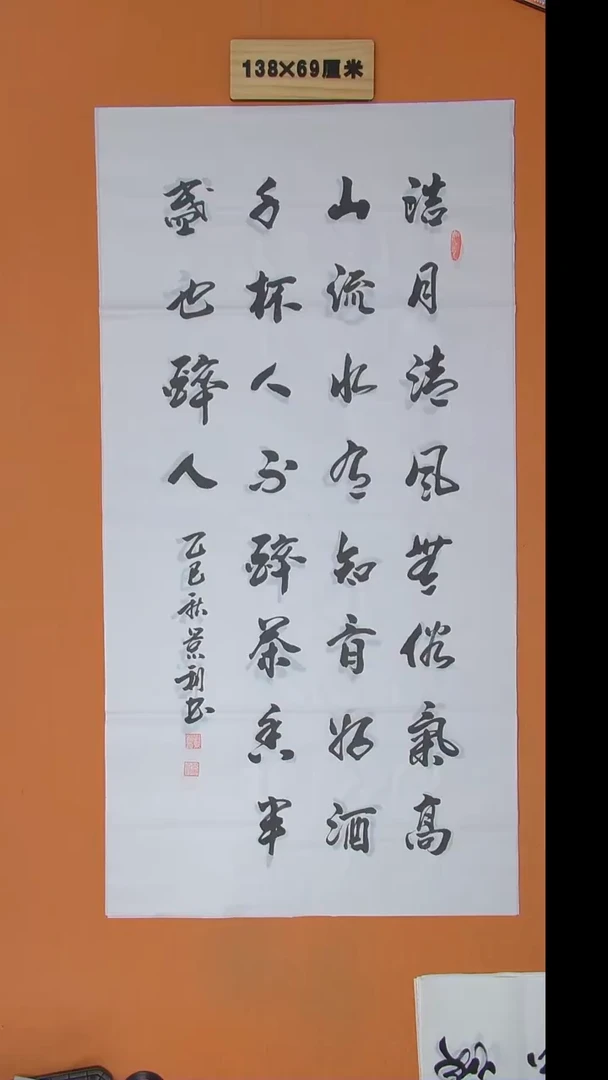 138×69厘米
皓月清風無俗氣高
山流水有知音好酒
千杯人不醉茶香半
盞也醉人
乙巳秋景利书